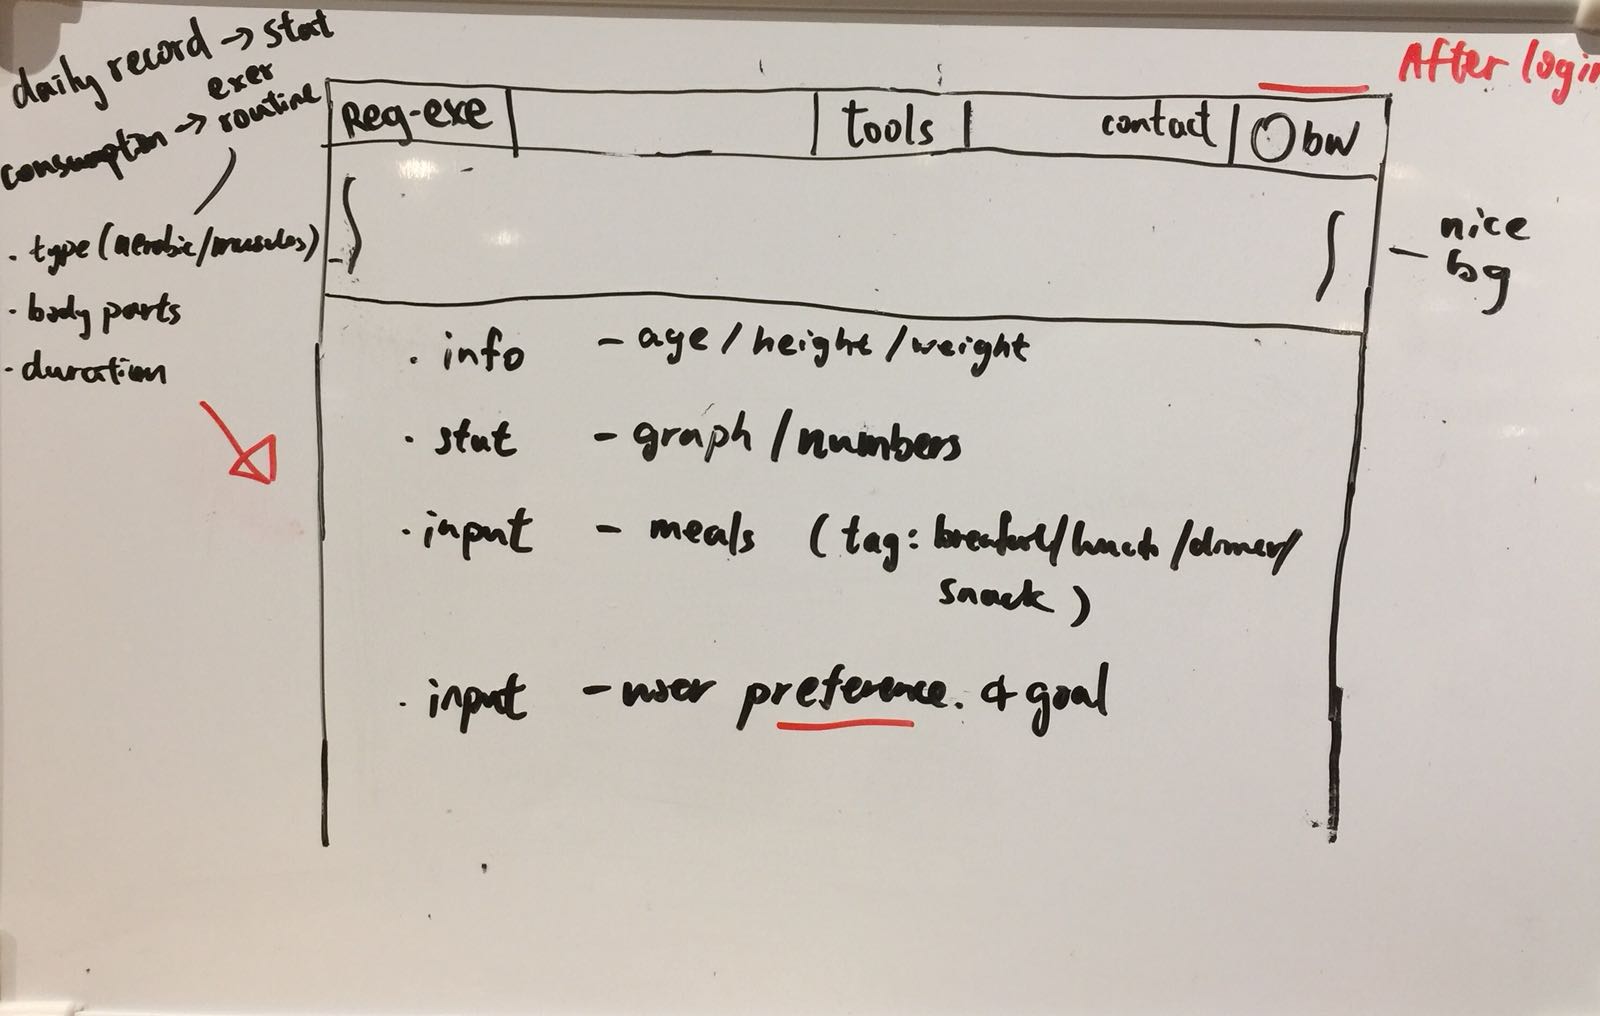 daily record → stat
consumption → exer routine
· type (aerobic/muscles)
· body parts
· duration
After login
Reg-exe
tools
contact
bw
nice
bg
· info - age / height / weight
· stat - graph / numbers
· input - meals (tag: breakfast/lunch/dinner/
snack)
· input - user preference. & goal